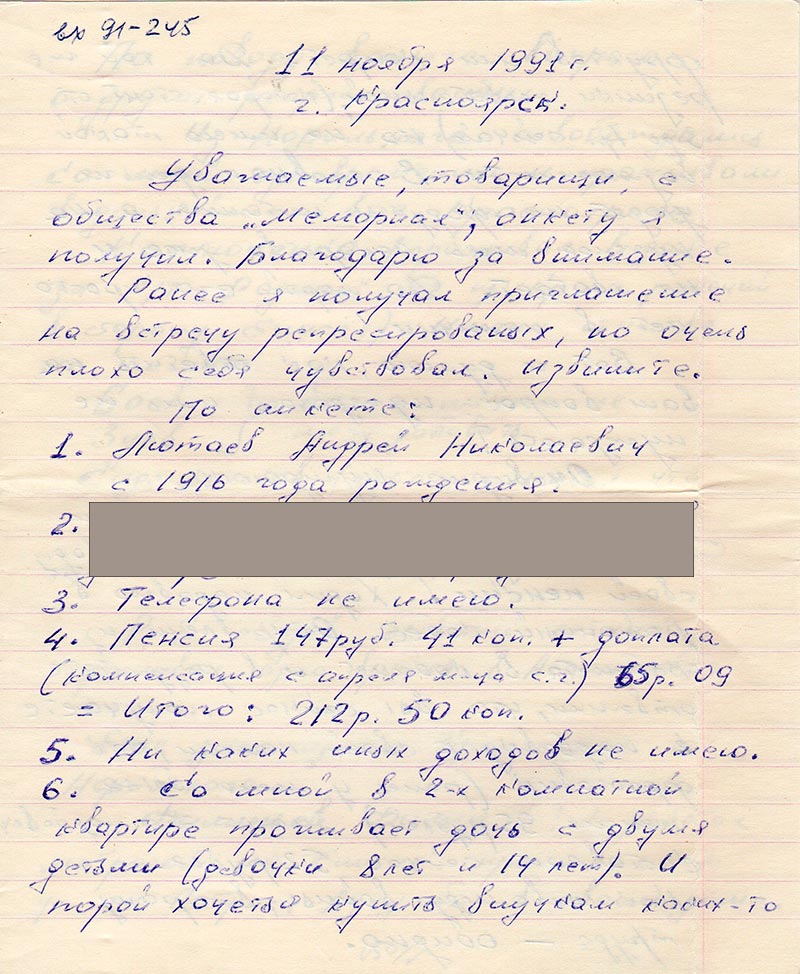 вх 91-245
11 ноября 1991 г.
г. Красноярск.
Уважаемые, товарищи, с
общества „Мемориал", анкету я
получил. Благодарю за внимание.
Ранее я получал приглашение
на встречу репресированых, но очень
плохо себя чувствовал. Извините.
По анкете:
1. Лютаев Андрей Николаевич
с 1916 года рождения.
2.
3. Телефона не имею.
4. Пенсия 147 руб. 41 коп. + доплата
(компенсация с апреля м-ца с.г.) 65 р. 09
= Итого: 212 р. 50 коп.
5. Ни каких иных доходов не имею.
6. Со мной в 2-х комнатной
квартире проживает дочь с двумя
детьми (девочки 8 лет и 14 лет). И
порой хочеться купить внучкам каких-то